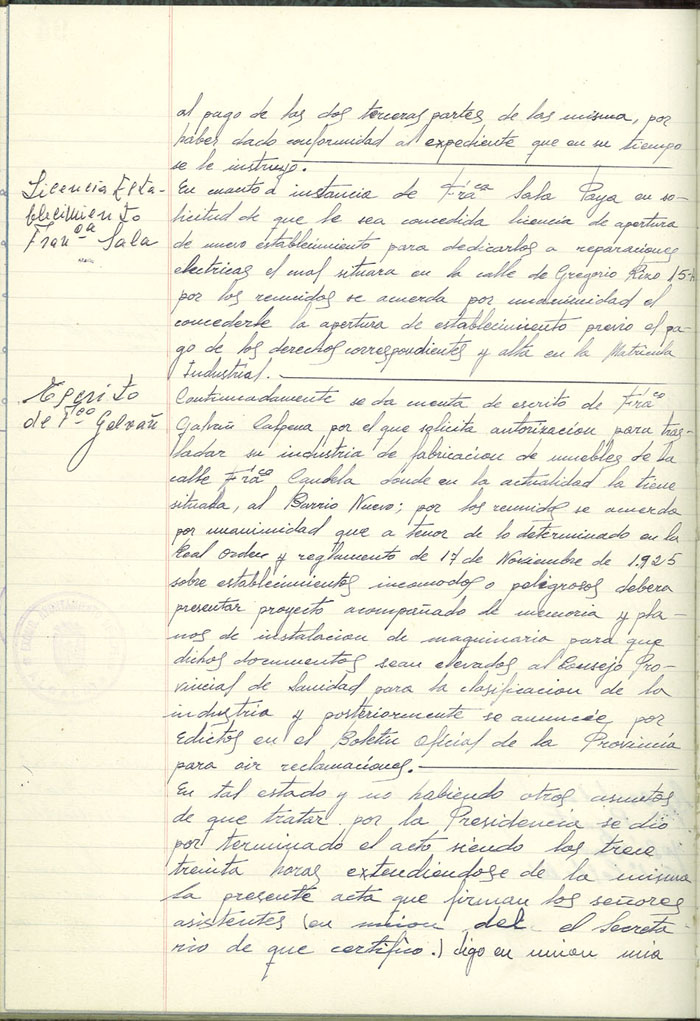 al pago de las dos terceras partes de las misma, por
haber dado conformidad al expediente que en su tiempo
se le instruyo.
Licencia Esta-
blecimiento
Fran.ca Sala
En cuanto a instancia de Fráca Sala Paya en so-
licitud de que le sea concedida licencia de apertura
de nuevo establecimiento para dedicarlos a reparaciones
electricas el cual situara en la calle de Gregorio Rizo 15
por los reunidos se acuerda por unanimidad el
concederle la apertura de establecimiento previo el pa-
go de los derechos correspondientes y alta en la Matricula
Industrial.
Escrito
de Fco Galvañ
Continuadamente se da cuenta de escrito de Fráco
Galvañ Calpena por el que solicita autorizacion para tras-
ladar su industria de fabricacion de muebles de la
calle Fráco Candela donde en la actualidad la tiene
situada, al Barrio Nuevo; por los reunidos se acuerda
por unanimidad que a tenor de lo determinado en la
Real Orden y reglamento de 17 de Noviembre de 1.925
sobre establecimientos incomodos o peligrosos debera
presentar proyecto acompañado de memoria y pla-
nos de instalacion de maquinaria para que
dichos documentos sean elevados al Consejo Pro-
vincial de Sanidad para la clasificacion de la
industria y posteriormente se anuncie por
Edictos en el Boletin Oficial de la Provincia
para oir reclamaciones.
En tal estado y no habiendo otros asuntos
de que tratar por la Presidencia se dio
por terminado el acto siendo las trece
treinta horas extendiendose de la misma
la presente acta que firman los señores
asistentes (en union del el Secreta-
rio de que certifico.) digo en union mia